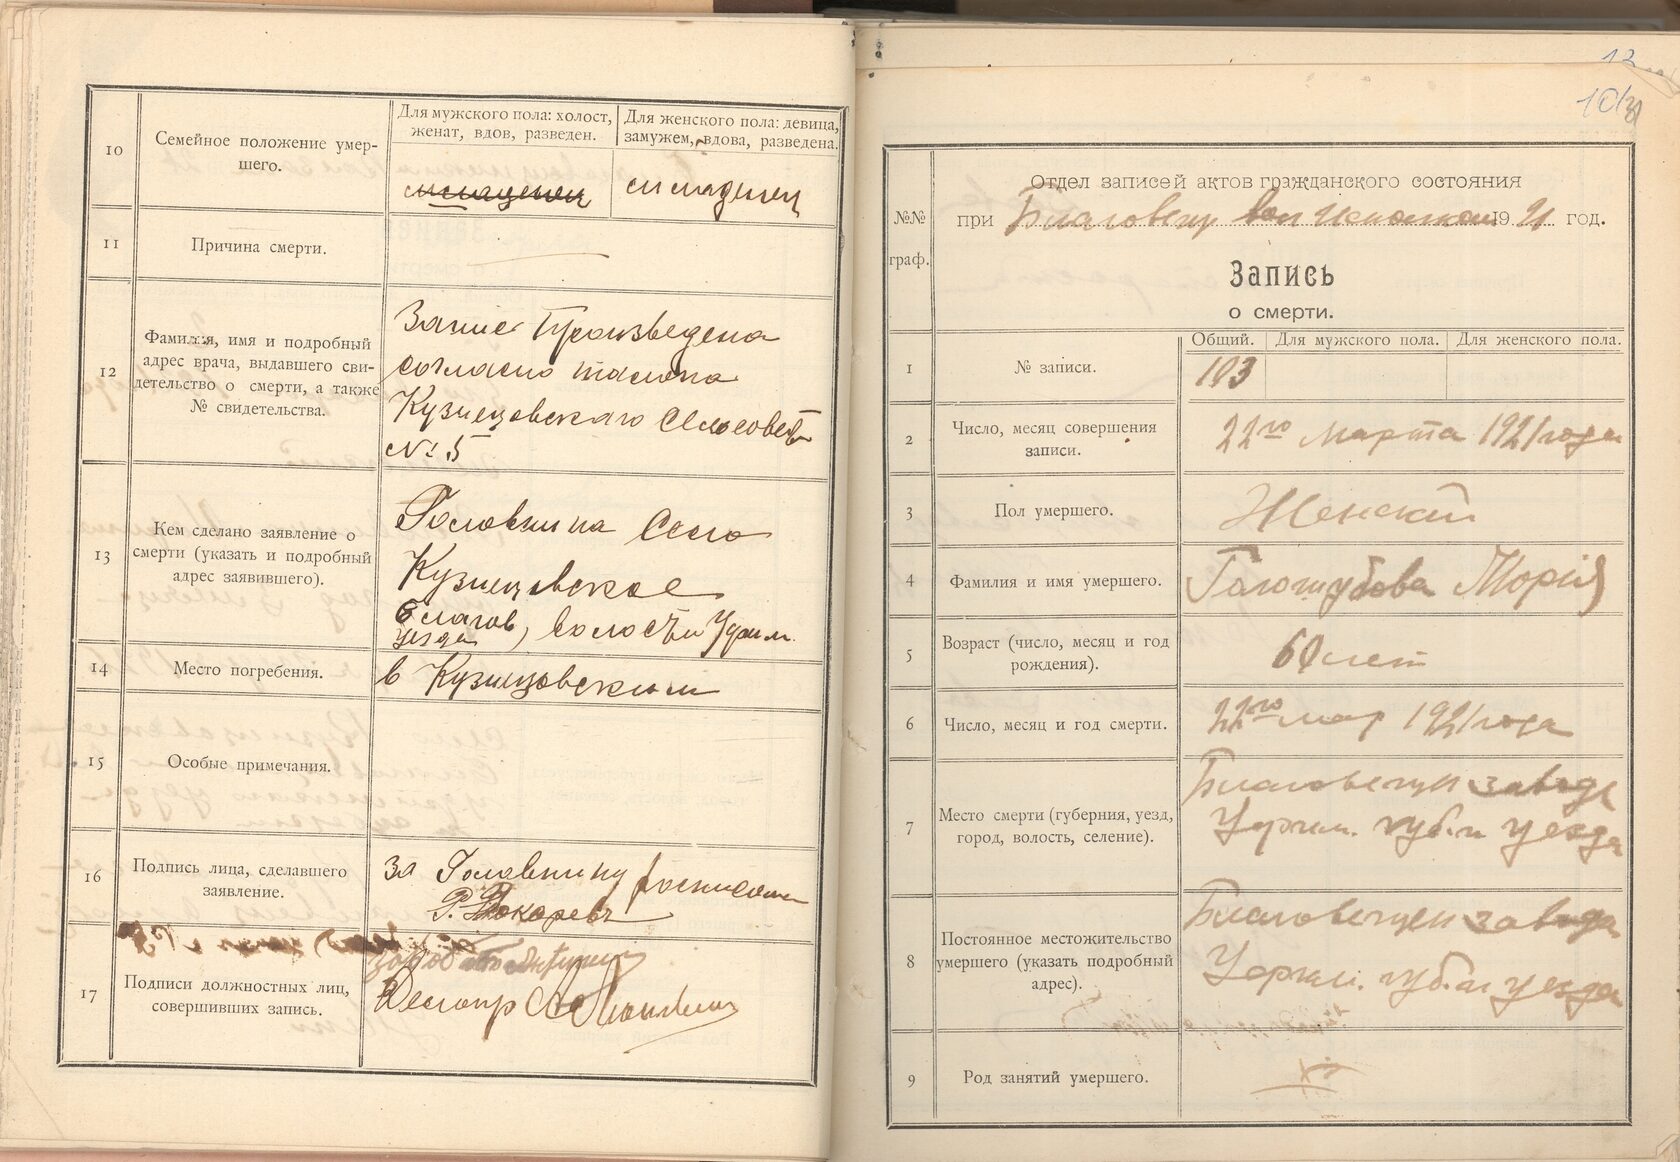 10
Семейное положение умер-
шего.
Для мужского пола: холост,
женат, вдов, разведен.
Для женского пола: девица,
замужем, вдова, разведена.
младенец
младенец
11
Причина смерти.
12
Фамилия, имя и подробный
адрес врача, выдавшего сви-
детельство о смерти, а также
№ свидетельства.
Запис Произведена
согласно талона
Кузнецовскаго Сельсовета
№ 5
13
Кем сделано заявление о
смерти (указать и подробный
адрес заявившего).
Головнина Село
Кузнецовское
благов, волости Уфим.
уезда
14
Место погребения.
в Кузнецовским
15
Особые примечания.
16
Подпись лица, сделавшего
заявление.
за Головнину росписался
Р. Токаревъ
17
Подписи должностных лиц,
совершивших запись.
Делопр
13
№№
граф.
Отдел записей актов гражданского состояния
при Благовещ вол Исполком 1921 год.
Запись
о смерти.
1
№ записи.
Общий.
Для мужского пола.
Для женского пола.
103
2
Число, месяц совершения
записи.
22го Марта 1921 года
3
Пол умершего.
Женский
4
Фамилия и имя умершего.
Голошубова Мория
5
Возраст (число, месяц и год
рождения).
60 лет
6
Число, месяц и год смерти.
22го мар 1921 года
7
Место смерти (губерния, уезд,
город, волость, селение).
Благовещен завода
Уфим. губ. и уезда
8
Постоянное местожительство
умершего (указать подробный
адрес).
Благовещен завода
Уфим. губ. и уезда
9
Род занятий умершего.